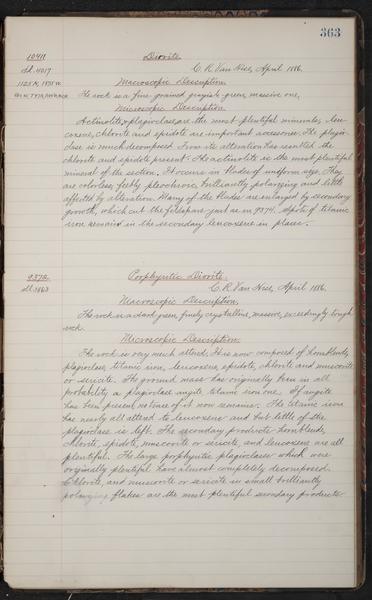 363
10411 Diorite.
Sl. 4017 C. R. Van Hise, April 1886.
Macroscopic Description
The rock is a fine grained grayish green, massive one.
Microscopic Description.
Actinolite & plagioclase are the most plentiful minerals, leu-
coxene, chlorite and epidote are important accessories. The plagio-
clase is much decomposed. From its alteration has resulted the
chlorite and epidote present. The actinolite is the most plentiful
mineral of the section. It occurs in blades of uniform size. They
are colorless, feebly pleochroic, brilliantly polarizing and little
affected by alteration. Many of the blades are enlarged by secondary
growth, which cut the feldspars just as in 9374. Spots of titanic
iron remains in the secondary leucoxene in places.
9372 Porphyritic Diorite.
Sl. 3863 C. R. Van Hise, April 1886.
Macroscopic Description.
The rock is a dark green, finely crystalline, massive, exceedingly tough
rock.
Microscopic Description.
The rock is very much altered. It is now composed of hornblende,
plagioclase, titanic iron, leucoxene, epidote, chlorite and muscovite
or sericite. The ground mass has originally been in all
probability a plagioclase augite titanic iron one. If augite
has been present no trace of it now remains. The titanic iron
has nearly all altered to leucoxene and but little of the
plagioclase is left. The secondary products hornblende,
chlorite, epidote, muscovite or sericite, and leucoxene are all
plentiful. The large porphyritic plagioclases which were
originally plentiful have almost completely decomposed.
Chlorite, and muscovite or sericite in small brilliantly
polarizing flakes are the most plentiful secondary products